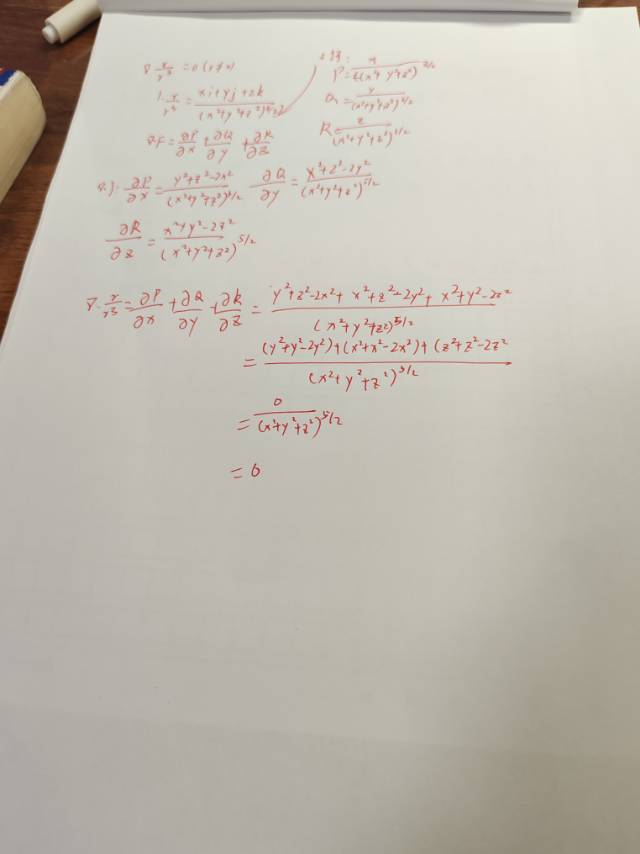 ∇·r/r³ = 0 (r≠0)
1. r/r³ = (xi+yj+zk)/(x²+y²+z²)^3/2
P = x/(x²+y²+z²)^3/2
Q = y/(x²+y²+z²)^3/2
R = z/(x²+y²+z²)^3/2
∇·F = ∂P/∂x + ∂Q/∂y + ∂R/∂z
∂P/∂x = (y²+z²-2x²)/(x²+y²+z²)^5/2 ∂Q/∂y = (x²+z²-2y²)/(x²+y²+z²)^5/2
∂R/∂z = (x²+y²-2z²)/(x²+y²+z²)^5/2
∇·r/r³ = ∂P/∂x + ∂Q/∂y + ∂R/∂z = (y²+z²-2x²+x²+z²-2y²+x²+y²-2z²)/(x²+y²+z²)^5/2
= ((y²+y²-2y²)+(x²+x²-2x²)+(z²+z²-2z²)/(x²+y²+z²)^5/2
= 0/(x²+y²+z²)^5/2
= 0